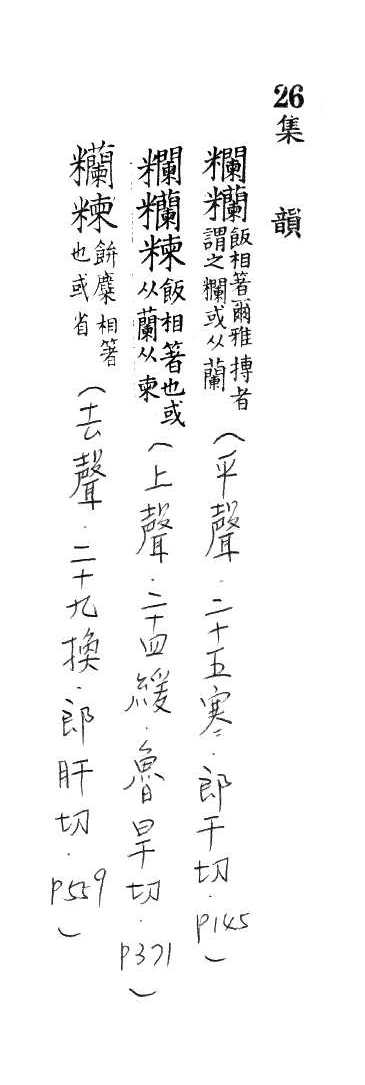 26集　韻
糷𥽸飯相著爾雅摶者謂之糷或从蘭（平聲．二十五寒．郎干切．P145）
糷𥽸𥻂飯相著也或从蘭从柬（上聲．二十四緩．魯旱切．P371）
𥽸𥻂餅麋相著也或省（去聲．二十九換．郎旰切．P559）